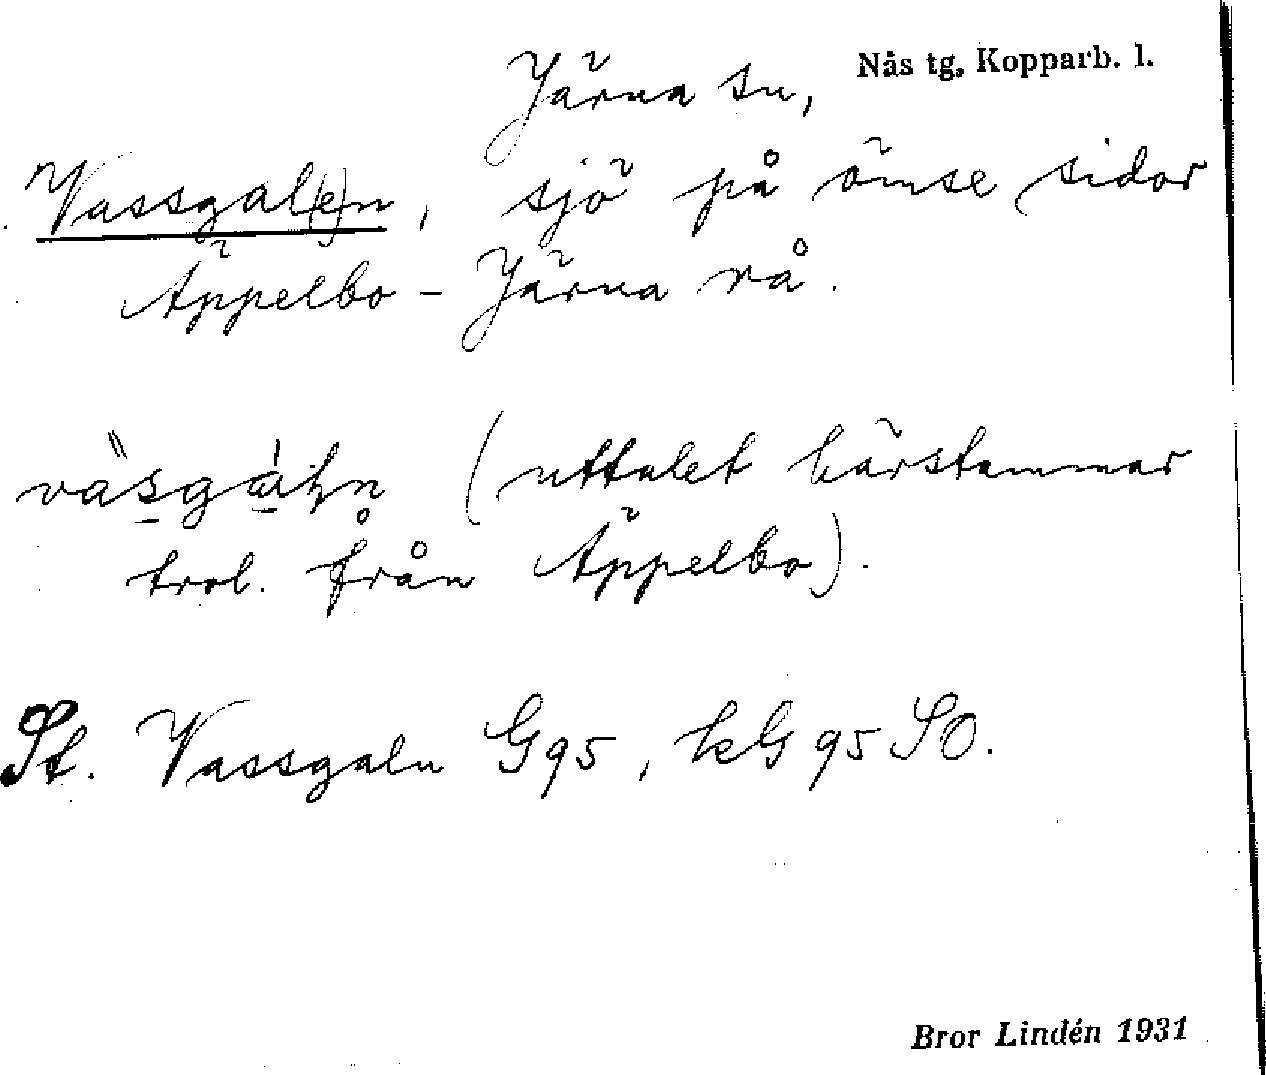 Järna sn, Nås tg, Kopparb. l.
Vassgal(e)n, sjö på ömse sidor
Äppelbo - Järna rå.
(uttalet härstammar
trol. från Äppelbo).
St. Vassgaln G95, kG 95 SO.
Bror Lindén 1931